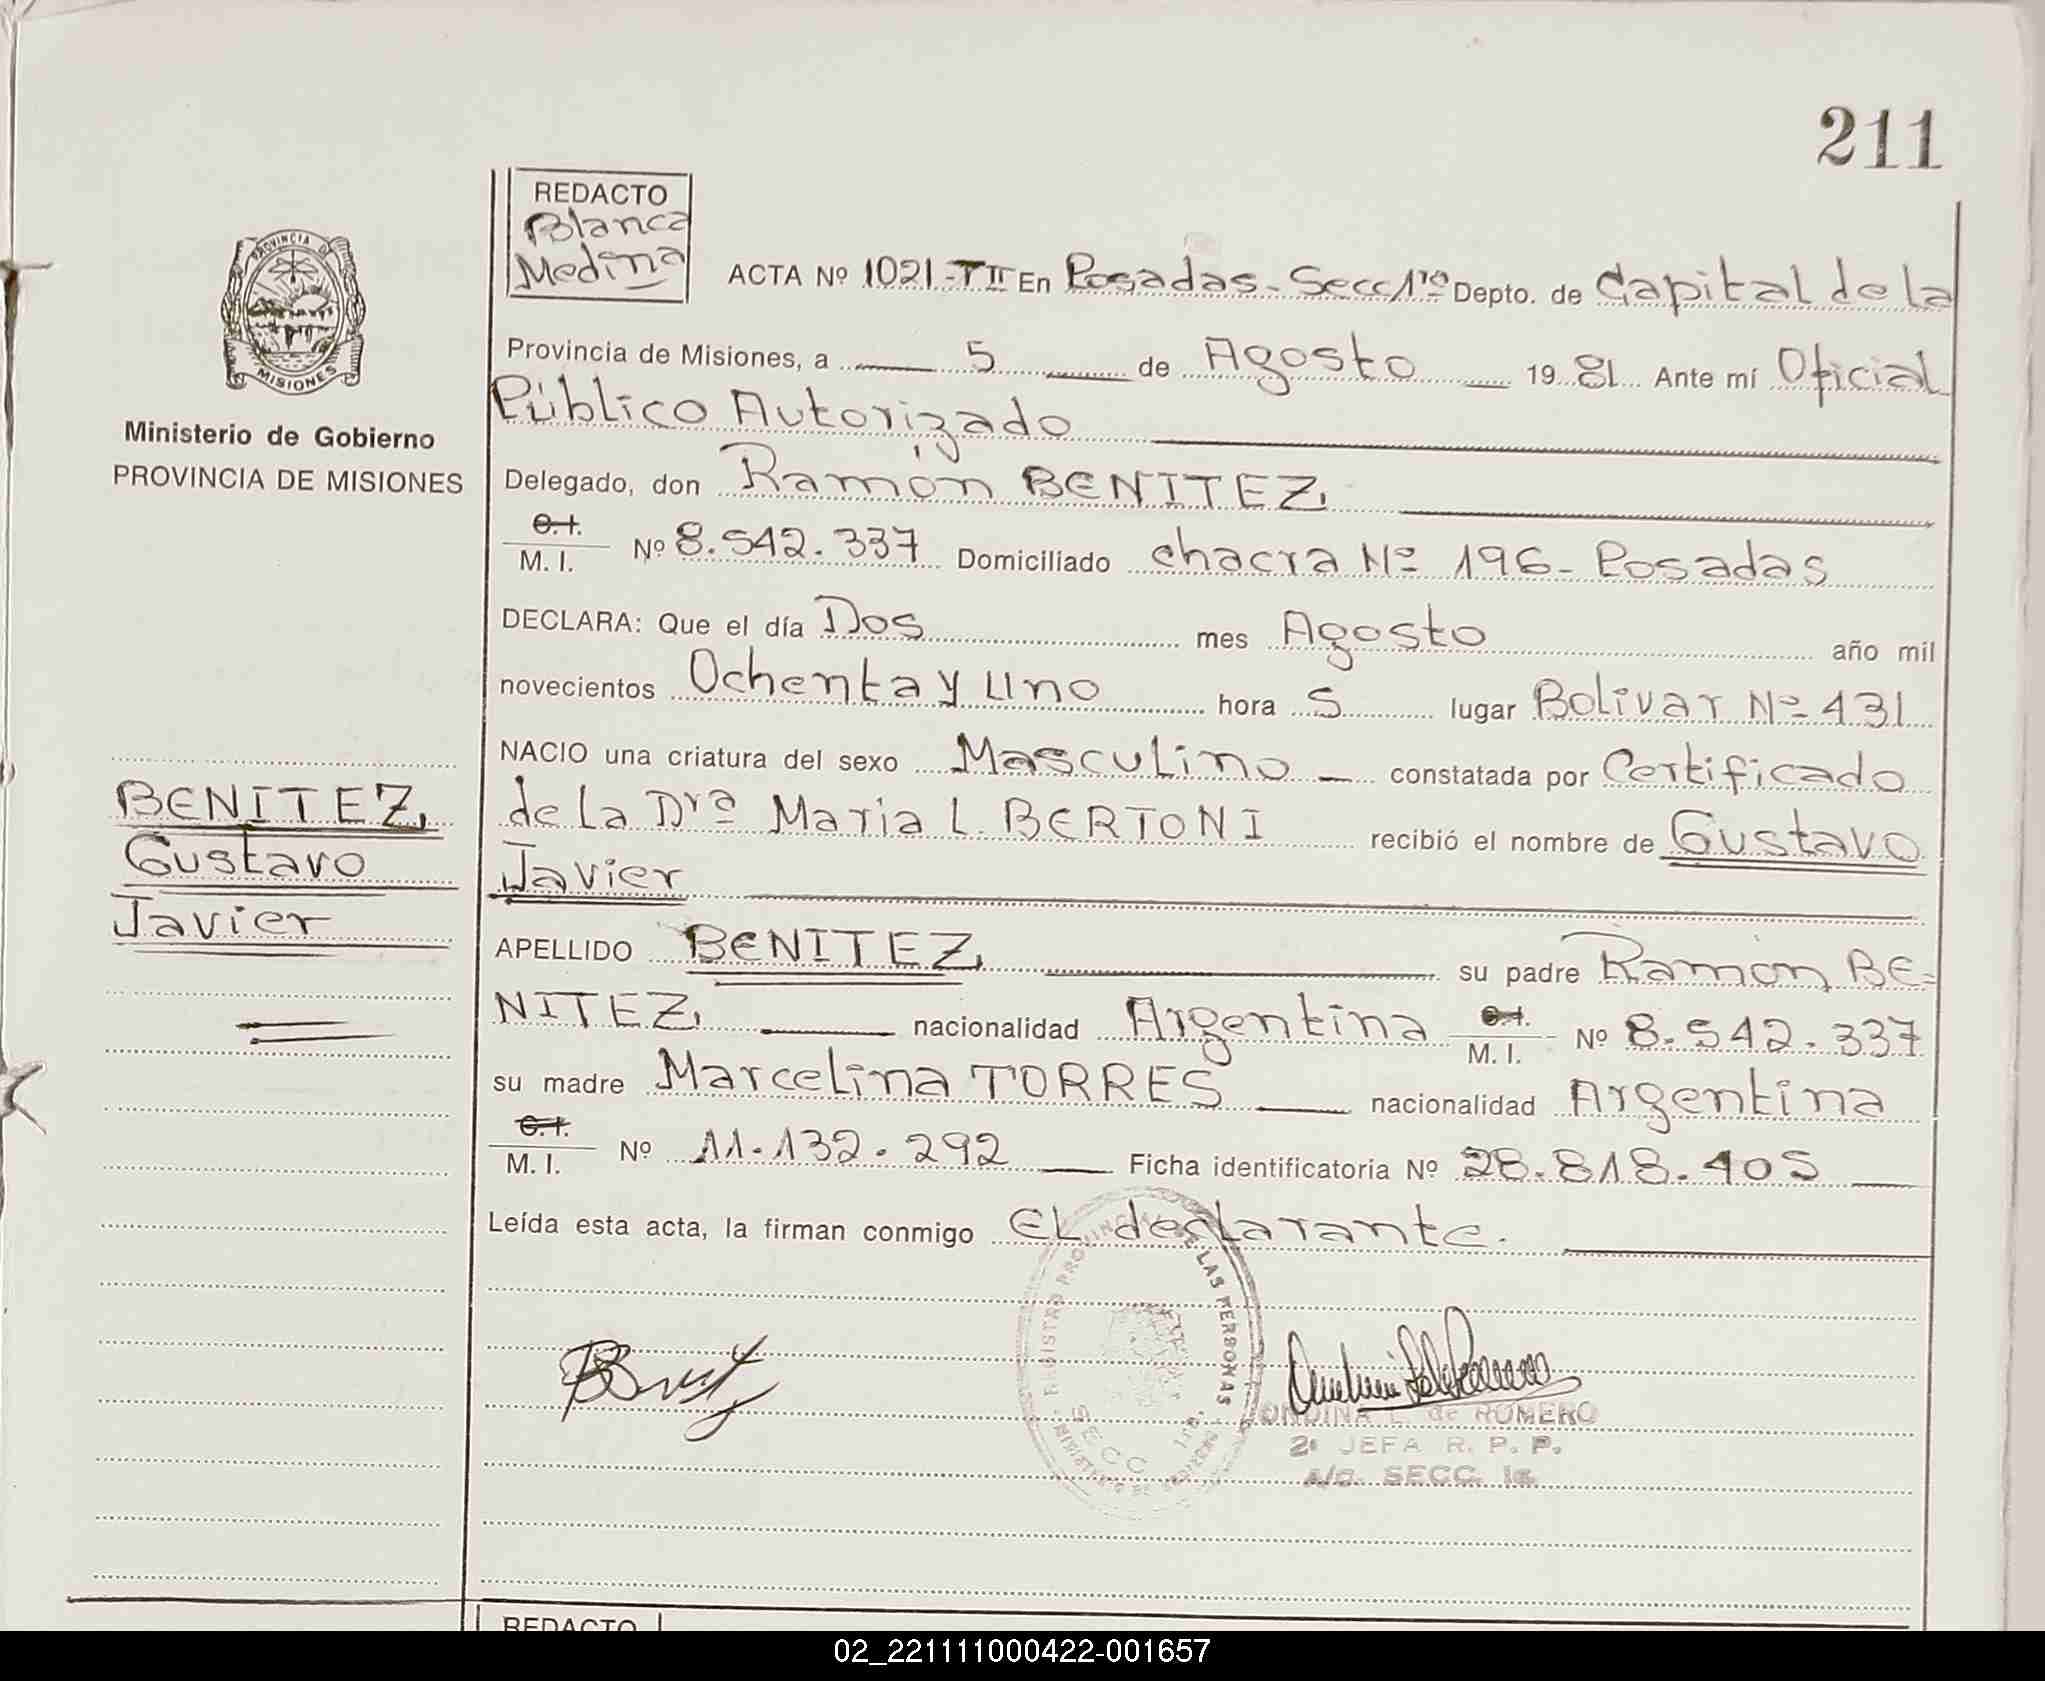 211
REDACTO
Blanca
Medina
ACTA Nº 1021-TII En Posadas - Secc 1ra Depto. de Capital de la
Provincia de Misiones, a 5 de Agosto 1981 Ante mí Oficial
Público Autorizado
Delegado, don Ramón BENITEZ
C.I.
M. I. Nº 8.542.337 Domiciliado chacra Nº 196 - Posadas
DECLARA: Que el día Dos mes Agosto año mil
novecientos Ochenta y Uno hora 5 lugar Bolivar Nº 431
NACIO una criatura del sexo Masculino constatada por Certificado
de la Dra Maria L. BERTONI recibió el nombre de Gustavo
Javier
APELLIDO BENITEZ su padre Ramón BE=
NITEZ nacionalidad Argentina C.I. M. I. Nº 8.542.337
su madre Marcelina TORRES nacionalidad Argentina
C.I.
M. I. Nº 11.132.292 Ficha identificatoria Nº 28.818.405
Leída esta acta, la firman conmigo El declarante.
PROVINCIA DE
MISIONES
Ministerio de Gobierno
PROVINCIA DE MISIONES
BENITEZ
Gustavo
Javier
REGISTRO PROVINCIAL DE LAS PERSONAS
SECC
ONDINA L. de ROMERO
2º JEFA R. P. P.
a/c. SECC. 1a.
REDACTO
02_221111000422-001657